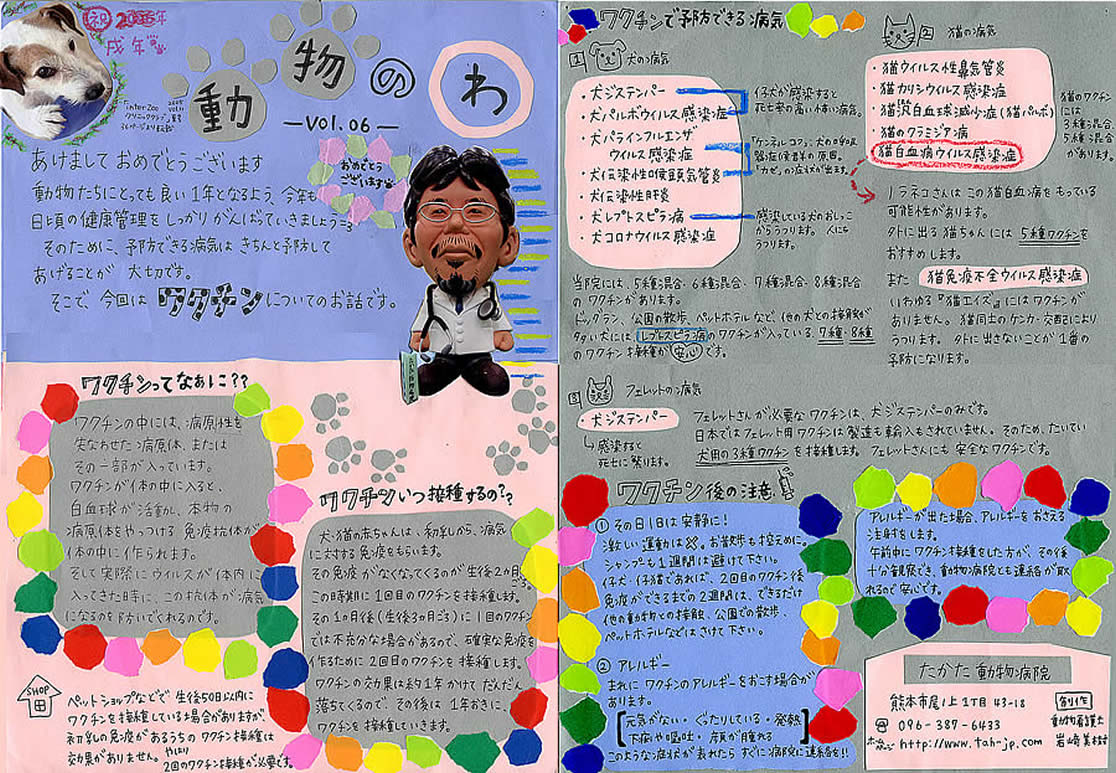 祝 2006年
戌年
動物のわ
―vol.06―
おめでとう
ございます
あけまして おめでとうございます
動物たちにとっても良い1年となるよう、今年も
日頃の健康管理をしっかりがんばっていきましょう
そのために、予防できる病気は きちんと予防して
あげることが 大切です。
そこで 今回は ワクチン についてのお話です。
ワクチンってなぁに??
ワクチンの中には、病原性を
失なわせた病原体、または
その一部が入っています。
ワクチンが体の中に入ると、
白血球が活動し、本物の
病原体をやっつける 免疫抗体が
体の中に作られます。
そして実際にウイルスが体内に
入ってきた時に、この抗体が病気
になるのを防いでくれるのです。
SHOP
ペットショップなどで 生後50日以内に
ワクチンを接種している場合がありますが、
初乳の免疫があるうちの ワクチン接種は
効果がありません。やはり
2回のワクチン接種が必要です。
ワクチンいつ接種するの??
犬・猫の赤ちゃんは、初乳から、病気
に対する免疫をもらいます。
その免疫がなくなってくるのが生後2ヵ月ごろ
この時期に1回目のワクチンを接種します。
その1ヵ月後(生後3ヵ月ごろ)に1回のワクチン
では不充分な場合があるので、確実な免疫を
作るために2回目のワクチンを接種します。
ワクチンの効果は約1年かけてだんだん
落ちてくるので、その後は 1年おきに、
ワクチンを接種していきます。
ワクチンで予防できる病気
1 犬の病気
・犬ジステンパー
・犬パルボウイルス感染症
・犬パラインフルエンザ
ウイルス感染症
・犬伝染性喉頭気管炎
・犬伝染性肝炎
・犬レプトスピラ病
・犬コロナウイルス感染症
仔犬が感染すると
死亡率の高い怖い病気。
「ケンネルコフ」、犬の呼吸
器症候群の原因。
「カゼ」の症状が出ます。
感染している犬のおしっこ
からうつります。 人にも
うつります。
当院には、5種混合・6種混合・7種混合・8種混合
のワクチンがあります。
ドッグラン、公園の散歩、ペットホテルなど、他の犬との接触が
多い犬には、レプトスピラ病のワクチンが入っている 7種・8種
のワクチン接種が 安心 です。
2 猫の病気
・猫ウイルス性鼻気管炎
・猫カリシウイルス感染症
・猫汎白血球減少症(猫パルボ)
・猫のクラミジア病
猫白血病ウイルス感染症
猫のワクチン
には
3種混合
5種混合
があります。
ノラネコさんは この猫白血病をもっている
可能性があります。
外に出る猫ちゃんには 5種ワクチンを
おすすめします。
また 猫免疫不全ウイルス感染症
いわゆる『猫エイズ』にはワクチンが
ありません。猫同士のケンカ・交配により
うつります。 外に出さないことが 1番の
予防になります。
3 フェレットの病気
・犬ジステンパー
感染すると
死亡に繋ります。
フェレットさんが必要なワクチンは、犬ジステンパーのみです。
日本ではフェレット用ワクチンは製造も輸入もされていません。そのため、たいてい
犬用の3種ワクチン を接種します。フェレットさんにも 安全なワクチンです。
ワクチン後の注意
① その日1日は安静に!
激しい運動は×。お散歩も控えめに。
シャンプーも1週間は避けて下さい。
仔犬・仔猫であれば、2回目のワクチン後
免疫ができるまでの2週間は、できるだけ
他の動物との接触、公園での散歩、
ペットホテルなどはさけて下さい。
② アレルギー
まれに ワクチンのアレルギーをおこす場合が
あります。
[元気がない・ぐたりしている・発熱
下痢や嘔吐・顔が腫れる]
このような症状が表れたら すぐに病院に連絡を!!
アレルギーが出た場合、アレルギーをおさえる
注射をします。
午前中にワクチン接種をした方が、その後
十分観察でき、動物病院とも連絡が取
れるので安心です。
たかた動物病院
熊本市尾ノ上1丁目43-18
096-387-6433
http://www.tah-jp.com
制作
動物看護士
岩崎美村